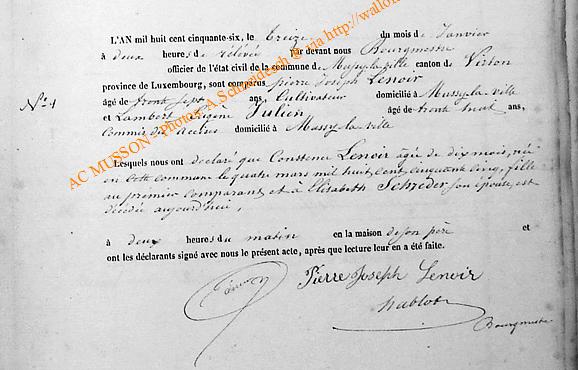 L'AN mil huit cent cinquante-six, le treize du mois de Janvier
à deux heures de relevée par devant nous Bourgmestre
officier de l'état civil de la commune de Mussy-la-ville canton de Virton
province de Luxembourg, sont comparus pierre Joseph Lenoir
N° 1
âgé de trente sept ans, Cultivateur domicilié à Mussy-la-ville
et Lambert Eugène Julien âgé de trente huit ans,
Commis des domicilié à Mussy-la-ville
Lesquels nous ont déclaré que Constence Lenoir âgée de dix mois, née
en cette commune le quatre mars mil huit cent cinquante cinq, fille
au prémier comparant et à Elisabeth Schreder son épouse, est
décédée aujourd'hui,
à deux heures du matin en la maison de son père et
ont les déclarants signé avec nous le présent acte, après que lecture leur en a été faite.
Pierre Joseph Lenoir
Bourgmestre
AC MUSSON - Photos A Schneidesch @ via http://wallon